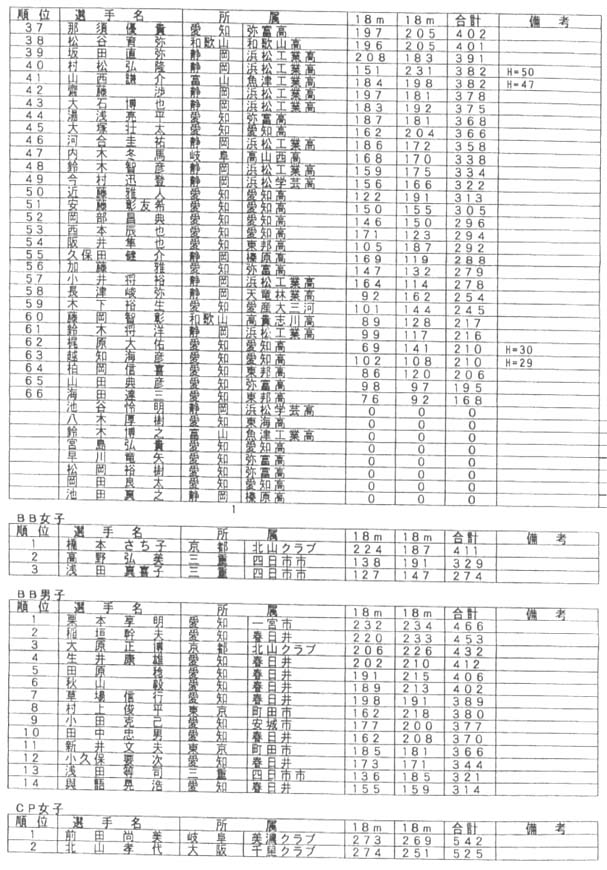 順位 選手名 所属 18m 18m 合計 備考
37 那須優貴 愛知 弥富高 197 205 402
38 松谷育弥 和歌山 和歌山高 196 205 401
39 坂田直弥 静岡 浜松工業高 208 183 391
40 村松弘隆 静岡 浜松工業高 151 231 382 H=50
41 山西謙介 富山 魚津工業高 184 198 382 H=47
42 齋藤渉 静岡 浜松工業高 197 181 378
43 大石博也 静岡 浜松工業高 183 192 375
44 湯浅亮平 愛知 弥富高 187 181 368
45 大塚壮太 愛知 愛知高 162 204 366
46 河合圭祐 静岡 浜松工業高 186 172 358
47 内木冬馬 岐阜 高山西高 168 170 338
48 鈴木智彦 静岡 浜松工業高 159 175 334
49 今村迅登 静岡 浜松学芸高 156 166 322
50 近藤雅人 愛知 愛知高 122 191 313
51 安藤彰友希 愛知 愛知高 150 155 305
52 岡部昌典 愛知 愛知高 146 150 296
53 西本辰也 愛知 愛知高 171 123 294
54 阪井隼也 愛知 東邦高 105 187 292
55 久保田健介 静岡 榛原高 169 119 288
56 加藤雅 愛知 弥富高 147 132 279
57 小井将裕 静岡 浜松工業高 164 114 278
58 長津峻弥 静岡 天竜林業高 92 162 254
59 木下裕生 愛知 愛産大三河 101 144 245
60 藤岡智彰 和歌山 高貴志川高 89 128 217
61 鈴木将洋 静岡 浜松工業高 99 117 216
62 梶原大佑 愛知 愛知高 69 141 210 H=30
63 越知海彦 愛知 愛知高 102 108 210 H=29
64 柏岡信喜 愛知 東邦高 86 120 206
65 山田典彦 愛知 弥富高 98 97 195
66 海田達三 愛知 東邦高 76 92 168
池谷怜明 静岡 浜松学芸高 0 0 0
八木厚樹 愛知 東海高 0 0 0
鈴木博之 富山 魚津工業高 0 0 0
宮島弘貴 愛知 愛知高 0 0 0
早川竜矢 愛知 弥富高 0 0 0
松岡裕樹 愛知 弥富高 0 0 0
岡田良太 愛知 愛知高 0 0 0
池田真之 静岡 榛原高 0 0 0
1
BB女子
順位 選手名 所属 18m 18m 合計 備考
1 橋本さち子 京都 北山クラブ 224 187 411
2 高野弘美 三重 四日市市 138 191 329
3 浅田真喜子 三重 四日市市 127 147 274
BB男子
順位 選手名 所属 18m 18m 合計 備考
1 栗本享明 愛知 一宮市 232 234 466
2 稲垣幹夫 愛知 春日井 220 233 453
3 大原正博 京都 北山クラブ 206 226 432
4 生井康雄 愛知 春日井 202 210 412
5 田原稔 愛知 春日井 191 215 406
6 秋山毅 愛知 春日井 189 213 402
7 草場信行 愛知 春日井 198 191 389
8 村上俊平 東京 町田市 162 218 380
9 小田克己 愛知 安城市 177 200 377
10 田中忠男 愛知 春日井 162 208 370
11 新井文夫 東京 町田市 185 181 366
12 小久保要次 愛知 春日井 173 171 344
13 浅田司 三重 四日市市 136 185 321
14 與語晃浩 愛知 春日井 155 159 314
CP女子
順位 選手名 所属 18m 18m 合計 備考
1 前田尚美 岐阜 美濃クラブ 273 269 542
2 北山孝代 大阪 千昆クラブ 274 251 525